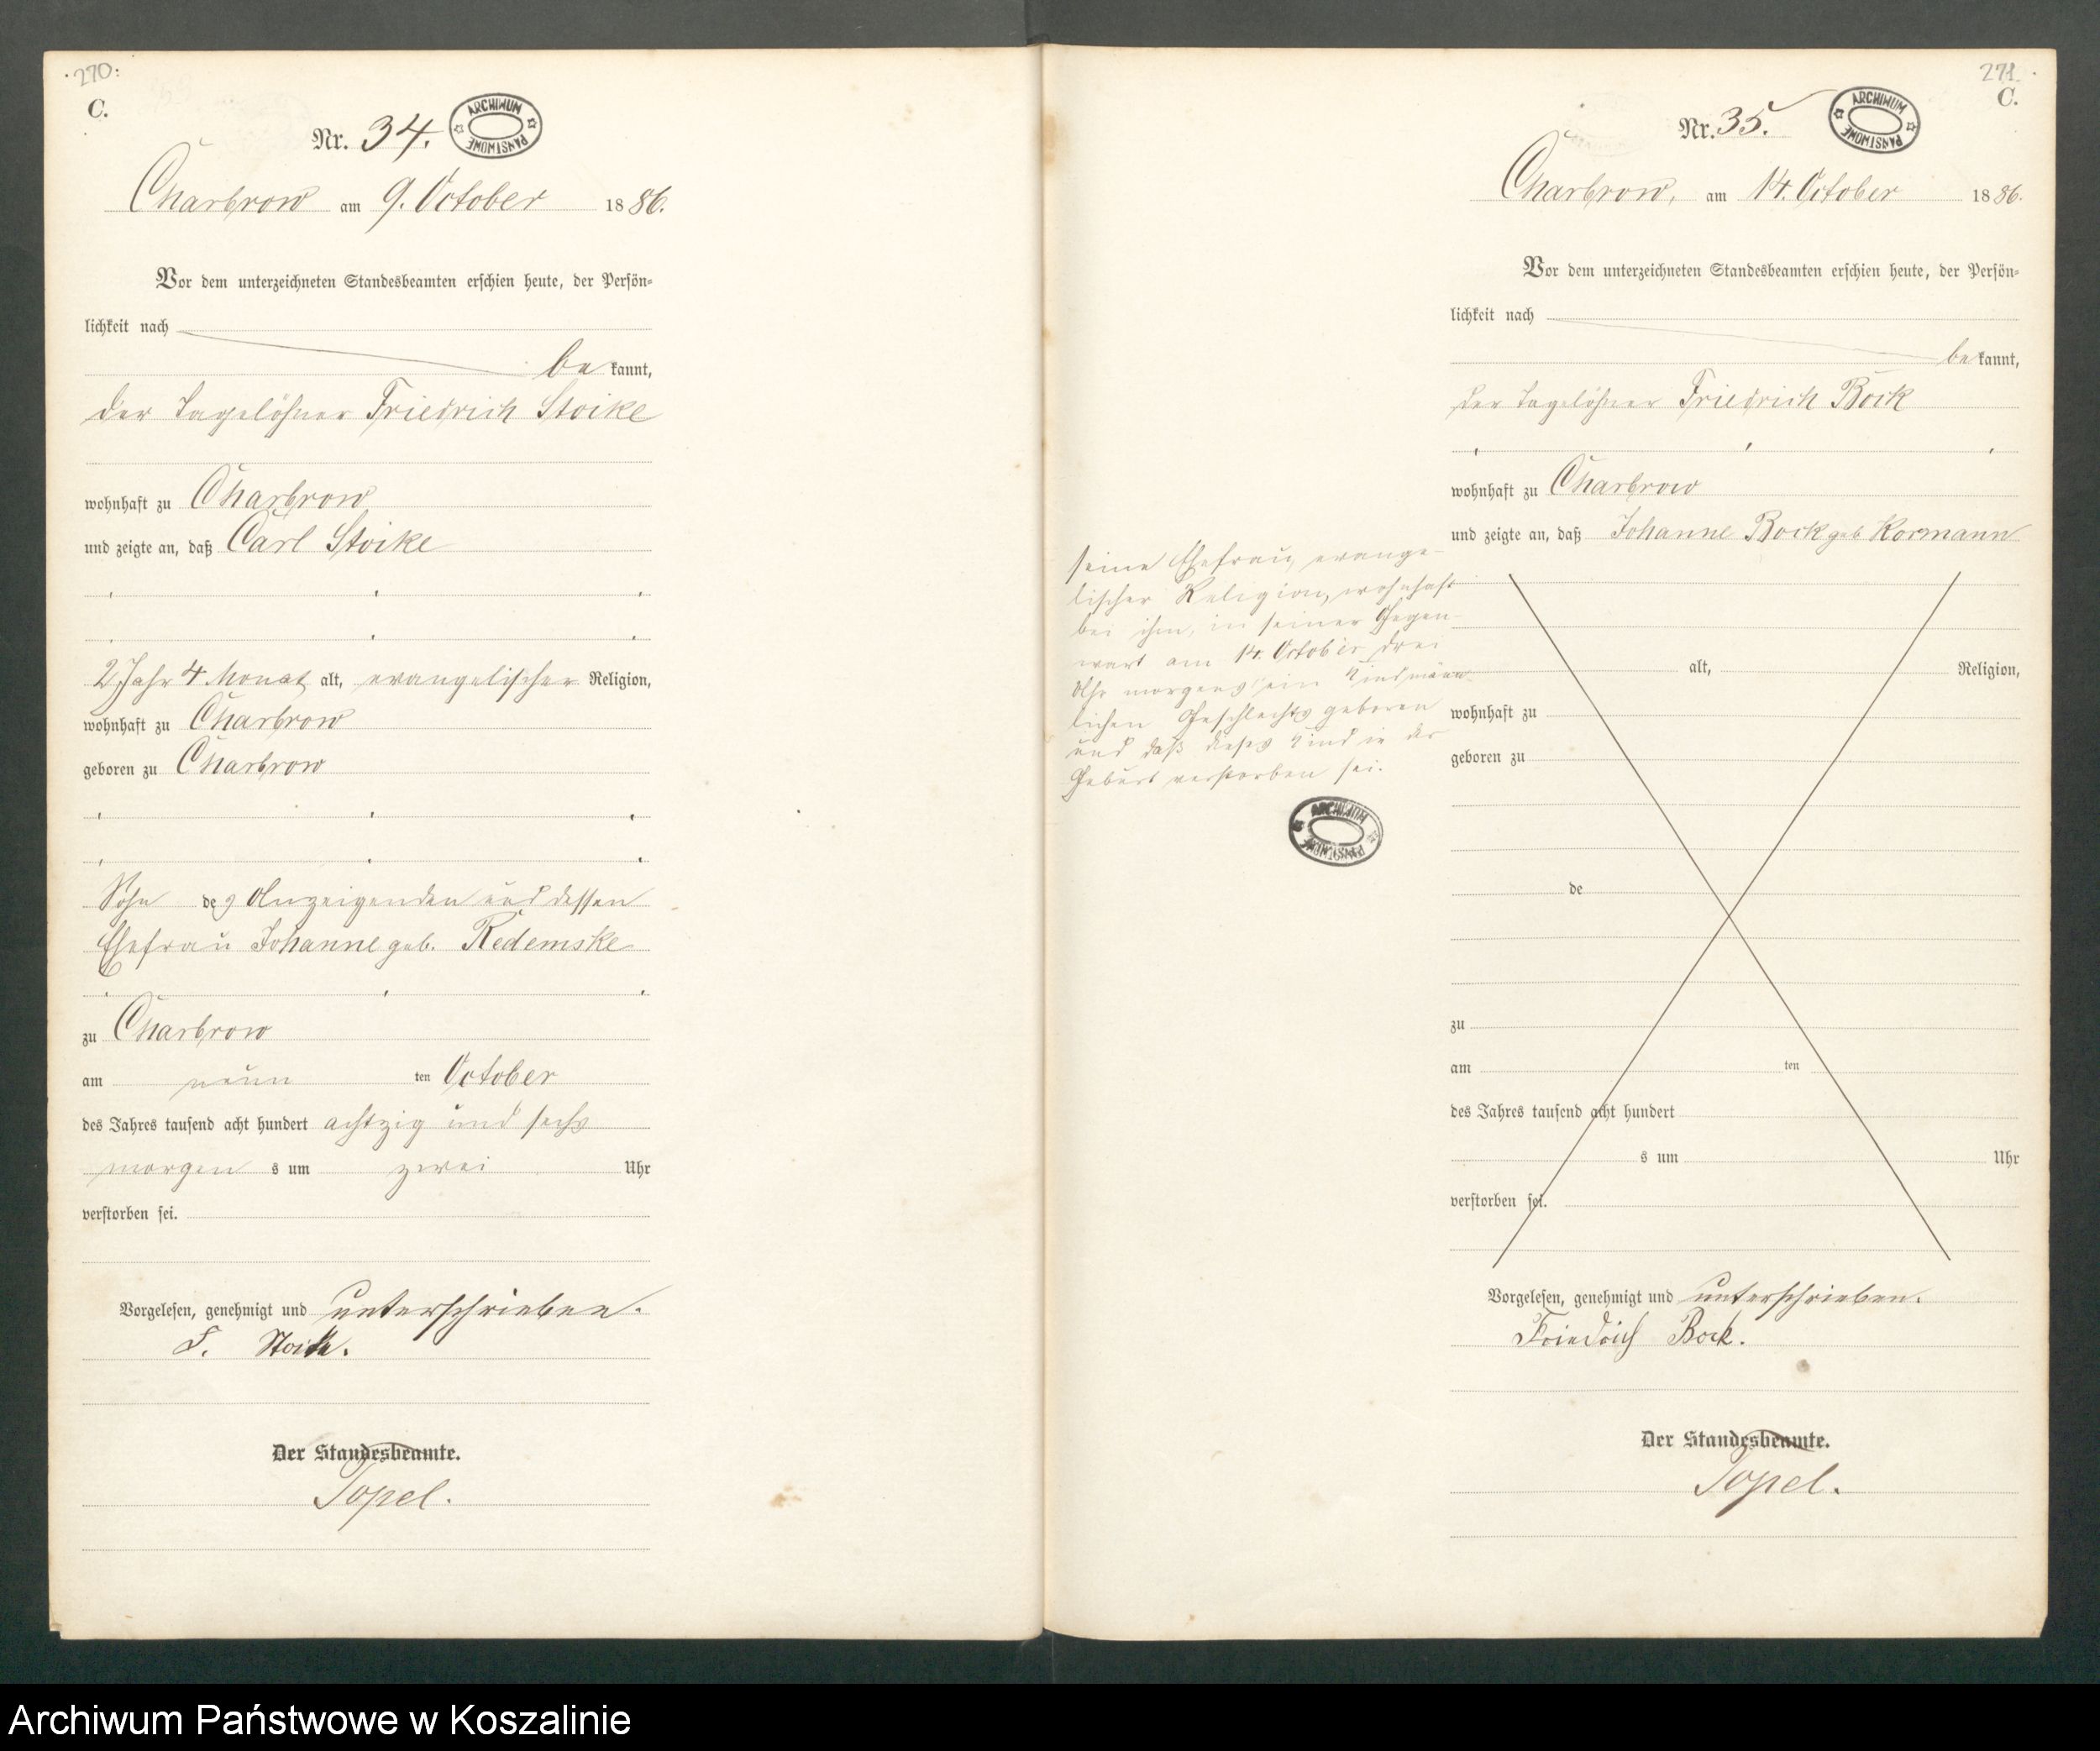 270.
C.
Nr. 34.
ARCHIWUM PAŃSTWOWE
Charbrow am 9. October 1886.
Vor dem unterzeichneten Standesbeamten erschien heute, der Persön-
lichkeit nach
be kannt,
der Tagelöhner Friedrich Stoike
wohnhaft zu Charbrow
und zeigte an, daß Carl Stoike
2 Jahr 4 Monat alt, evangelischer Religion,
wohnhaft zu Charbrow
geboren zu Charbrow
Sohn des Anzeigenden und dessen
Ehefrau Johanne geb. Redemske
zu Charbrow
am neun ten October
des Jahres tausend acht hundert achtzig und sechs
morgen s um zwei Uhr
verstorben sei.
Vorgelesen, genehmigt und unterschrieben.
F. Stoike.
Der Standesbeamte.
Topel.
271.
C.
Nr. 35.
ARCHIWUM PAŃSTWOWE
Charbrow, am 14. October 1886.
Vor dem unterzeichneten Standesbeamten erschien heute, der Persön-
lichkeit nach
be kannt,
der Tagelöhner Friedrich Bock
wohnhaft zu Charbrow
und zeigte an, daß Johanne Bock geb Kormann
seine Ehefrau, evange-
lischer Religion, wohnhaft
bei ihm, in seiner Gegen-
wart am 14. October drei
Uhr morgens ein Kind männ-
lichen Geschlechts geboren
und daß dieses Kind in der
Geburt verstorben sei.
ARCHIWUM PAŃSTWOWE
alt, Religion,
wohnhaft zu
geboren zu
de
zu
am ten
des Jahres tausend acht hundert
s um Uhr
verstorben sei.
Vorgelesen, genehmigt und unterschrieben.
Friedrich Bock.
Der Standesbeamte.
Topel.
Archiwum Państwowe w Koszalinie